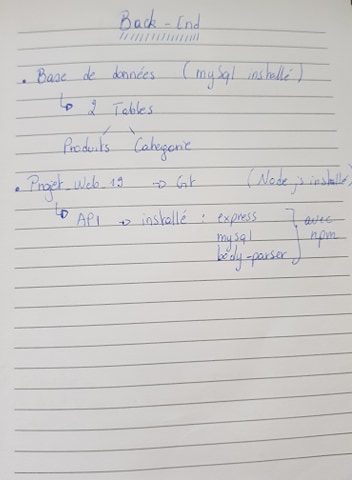 Back - End
• Base de données ( mySql installé )
↳ 2 Tables
Produits Categorie
• Projet_Web_19 → Git (Node js installé)
↳ API → installé : express
mysql
body-parser
avec
npm